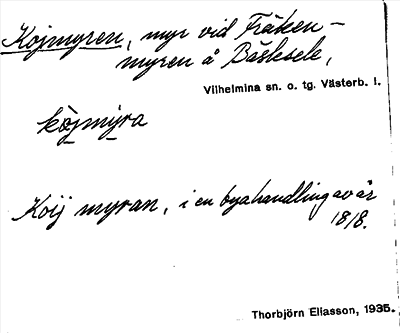 Kojmyren, myr vid Fräken-
myren å Bäsksele,
Vilhelmina sn. o. tg. Västerb. l.
kòjmýra
Koij myran, i en byahandling av år
1818.
Thorbjörn Eliasson, 1935.